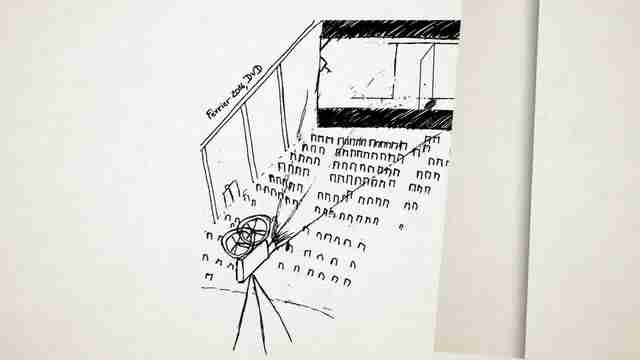 Février 2014, DVD